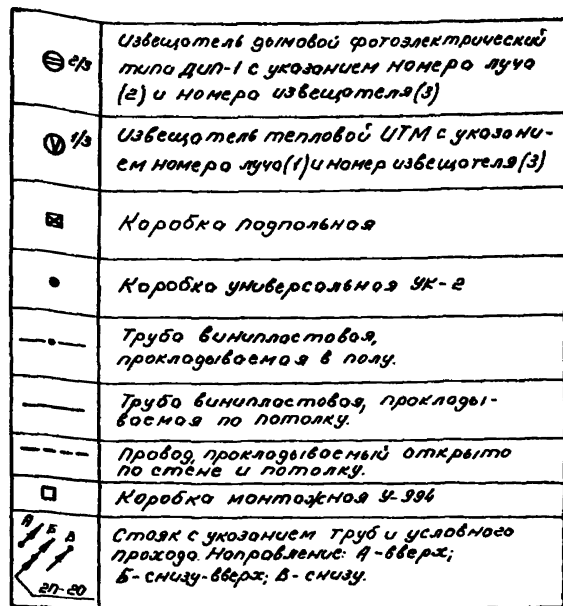 2/3
Извещатель дымовой фотоэлектрический
типа ДИП-1 с указанием номера луча
(2) и номера извещателя(3)
1/3
Извещатель тепловой ИТМ с указани-
ем номера луча(1) и номер извещателя(3)
Коробка подпольная
Коробка универсальная УК-2
Труба винипластовая,
прокладываемая в полу.
Труба винипластовая, проклады-
ваемая по потолку.
Провод, прокладываемый открыто
по стене и потолку.
Коробка монтажная У-994
А Б В
2П-20
Стояк с указанием труб и условного
прохода. Направление: А-вверх;
Б-снизу-вверх; В-снизу.